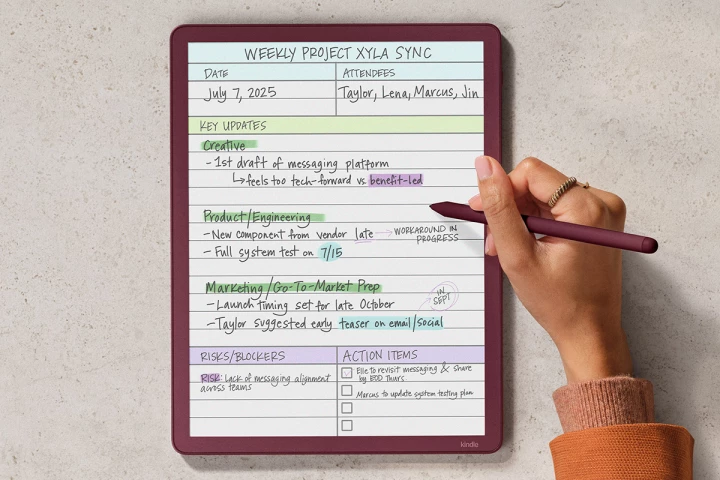 WEEKLY PROJECT XYLA SYNC
DATE
ATTENDEES
July 7, 2025
Taylor, Lena, Marcus, Jin
KEY UPDATES
Creative
- 1st draft of messaging platform
↳ feels too tech-forward vs benefit-led
Product/Engineering
- New component from vendor late → WORKAROUND IN
PROGRESS
- Full system test on 7/15
Marketing/Go-To-Market Prep
- Launch timing set for late October
IN
SEPT
- Taylor suggested early teaser on email/social
RISKS/BLOCKERS
RISK: Lack of messaging alignment
across teams
ACTION ITEMS
Elle to revisit messaging & share
by EOD Thurs
Marcus to update system testing plan
kindle